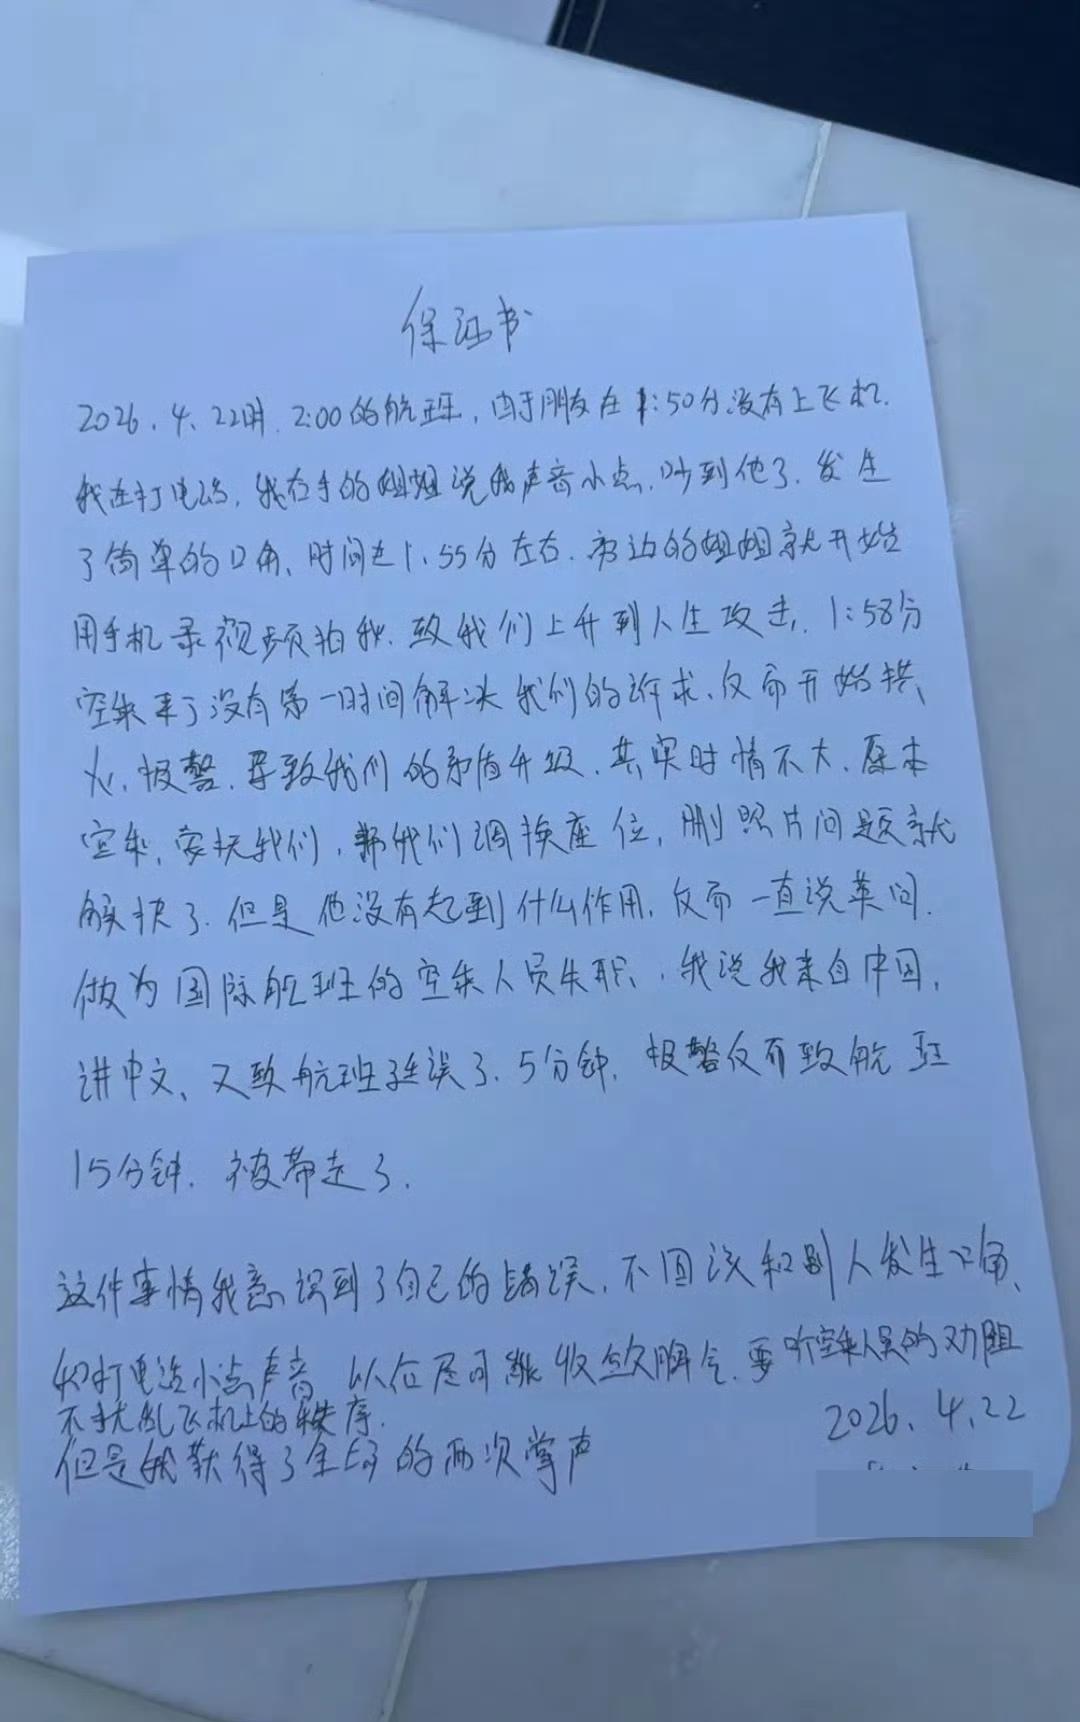 保证书
2026.4.22时.2:00的航班,由于朋友在1:50分没有上飞机.
我在打电话,我右手的姐姐说我声音小点.吵到他了.发生
了简单的口角、时间在1.55分左右.旁边的姐姐就开始
用手机录视频拍我.致我们上升到人生攻击.1:58分
空乘来了没有第一时间解决我们的诉求、反而开始拱
火、报警.导致我们的矛盾升级.其实时情不大.原本
空乘,安抚我们,帮我们调换座位,删照片问题就
解决了.但是他没有起到什么作用.反而一直说英问.
做为国际航班的空乘人员失职,我说我来自中国,
讲中文、又致航班延误了.5分钟.报警反而致航班
15分钟.被带走了.
这件事情我意识到了自己的错误.不因该和别人发生口角、
和打电话小点声音 以后尽可能收敛脾气.要听空乘人员的劝阻
不扰乱飞机上的秩序.
但是我获得了全场的两次掌声
2026.4.22